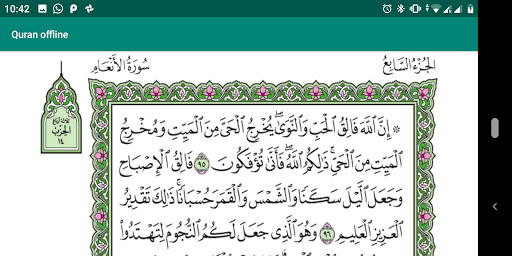 10:42
Quran offline
سُورَةُ الأَنْعَامِ
الجُزْءُ السَّابِعُ
الحِزْبُ
١٤
۞ إِنَّ ٱللَّهَ فَالِقُ ٱلْحَبِّ وَٱلنَّوَىٰۖ يُخْرِجُ ٱلْحَىَّ مِنَ ٱلْمَيِّتِ وَمُخْرِجُ
ٱلْمَيِّتِ مِنَ ٱلْحَىِّۚ ذَٰلِكُمُ ٱللَّهُۖ فَأَنَّىٰ تُؤْفَكُونَ ٩٥ فَالِقُ ٱلْإِصْبَاحِ
وَجَعَلَ ٱلَّيْلَ سَكَنًا وَٱلشَّمْسَ وَٱلْقَمَرَ حُسْبَانًاۚ ذَٰلِكَ تَقْدِيرُ
ٱلْعَزِيزِ ٱلْعَلِيمِ ٩٦ وَهُوَ ٱلَّذِى جَعَلَ لَكُمُ ٱلنُّجُومَ لِتَهْتَدُوا۟